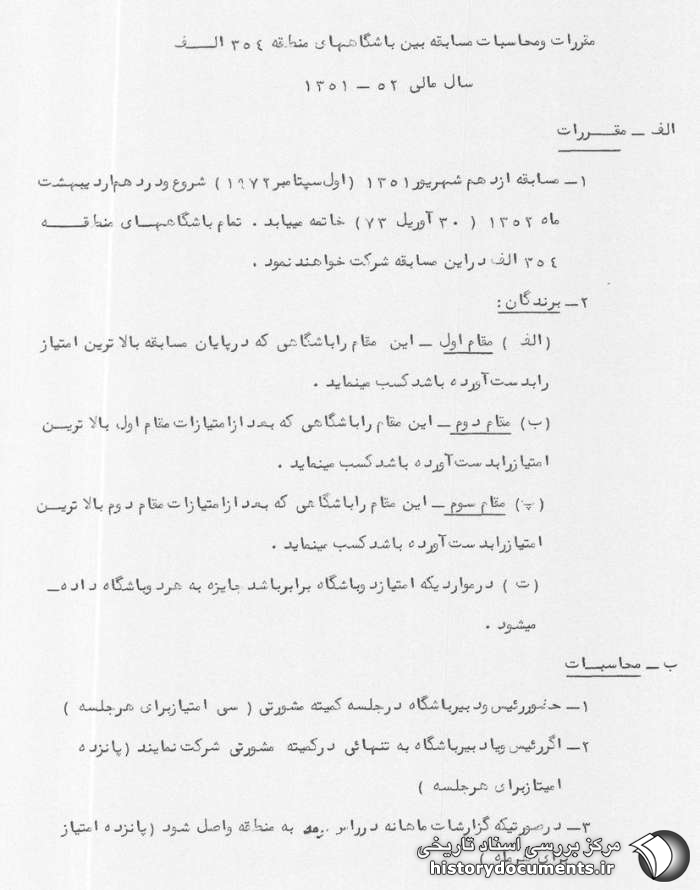 مقررات ومحاسبات مسابقه بین باشگاههای منطقه ٣٥٤ الـــف
سال مالی ٥٢ – ١٣٥١
الف – مقــررات
١– مسابقه ازدهم شهریور١٣٥١ (اول سپتامبر١٩٧٢) شروع ودردهم اردیبهشت
ماه ١٣٥٢ ( ٣٠ آوریل ٧٣) خاتمه مییابد . تمام باشگاههـای منطقـــه
٣٥٤ الف دراین مسابقه شرکت خواهند نمود .
٢– برندگان :
(الف ) مقام اول – این مقام راباشگاهی که درپایان مسابقه بالاترین امتیاز
رابدست آورده باشد کسب مینماید .
(ب) مقام دوم – این مقام راباشگاهی که بعد ازامتیازات مقام اول بالا تریـــن
امتیازرابدست آورده باشد کسب مینماید .
(پ) مقام سوم – این مقام راباشگاهی که بعد ازامتیازات مقام دوم بالا تریـــن
امتیازرابدست آورده باشد کسب مینماید .
(ت ) درمواردیکه امتیازدوباشگاه برابرباشد جایزه به هردوباشگاه داده–
میشود .
ب – محاسبــات
١– حضوررئیس ودبیرباشگاه درجلسه کمیته مشورتی ( سی امتیازبرای هرجلسه )
٢– اگررئیس ویادبیرباشگاه به تنهائی درکمیته مشورتی شرکت نمایند (پانزده
امیتازبرای هرجلسه )
٣– درصورتیکه گزارشات ماهانه درراس به منطقه واصل شود (پانزده امتیاز
مرکز بررسی اسناد تاریخی
historydocuments.ir